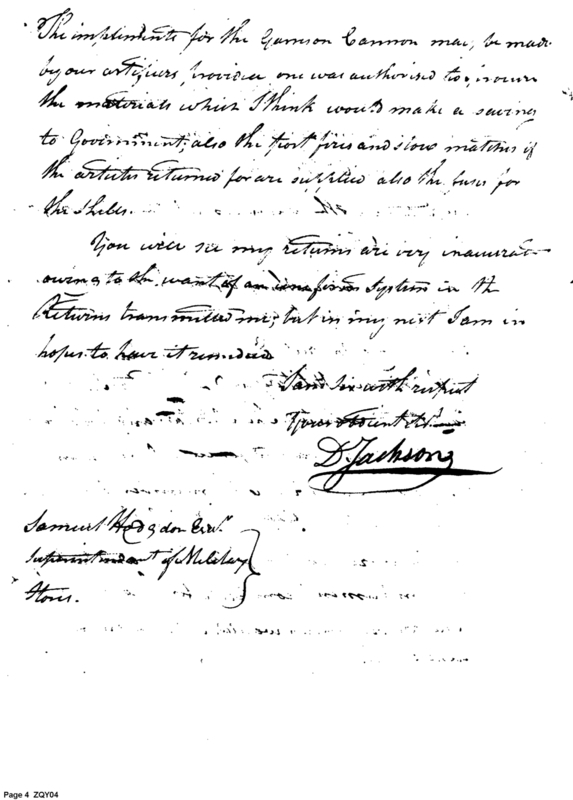 The implements for the Garrison Cannon may, be made
by our artificers, provided one was authorised to procure
the materials which I think would make a saving
to Government; also the port fires and slow matches if
the articles returned for are supplied also the fuses for
the Shells.
You will see my returns are very inaccurate
owing to the want of an uniform System in the
Returns transmitted me; but in my next I am in
hopes to have it remedied
I am Sir with respect
Your obedient
D. Jackson
Samuel Hodgdon Esqr.
Superintendant of Military
Stores.
Page 4 ZQY04